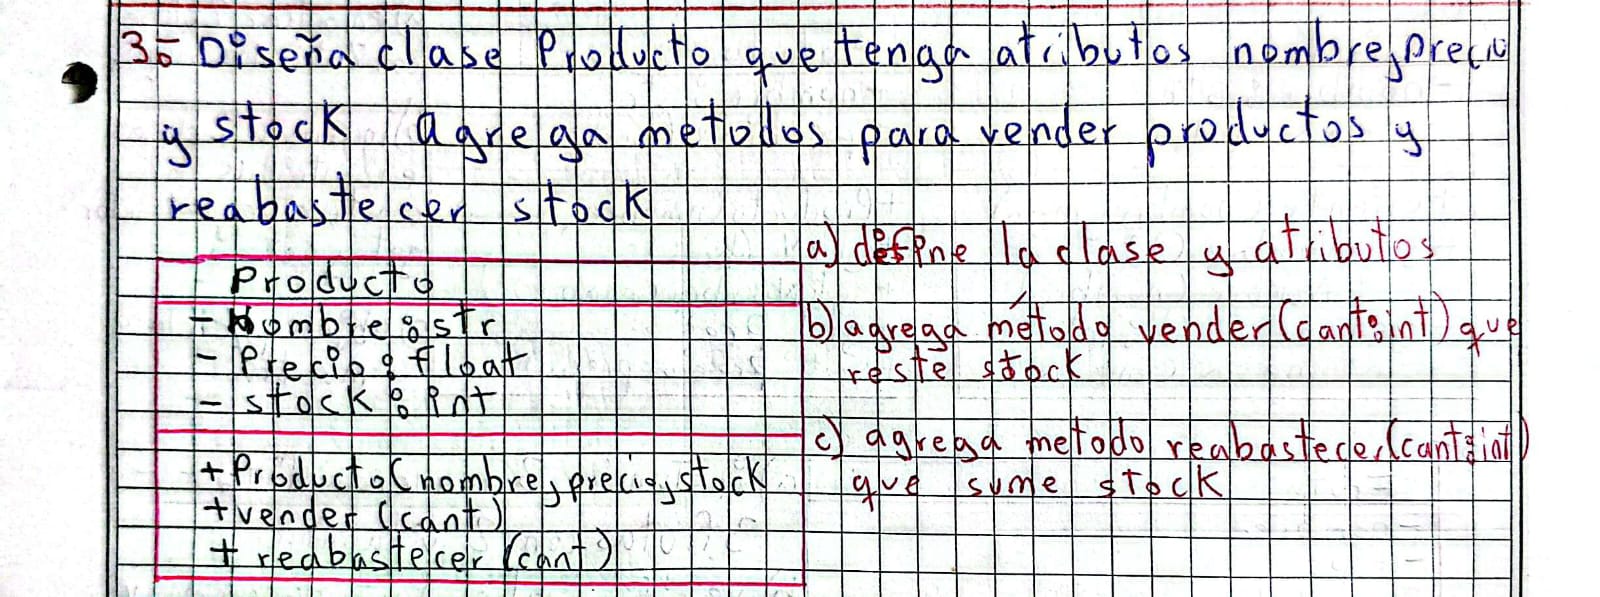 35 Diseña clase Producto que tenga atributos nombre, precio
y stock agrega metodos para vender productos y
reabastecer stock
Producto
- Nombre: str
- Precio: float
- stock: int
+ Producto(nombre, precio, stock
+ vender (cant)
+ reabastecer (cant)
a) define la clase y atributos
b) agrega método vender(cant:int) que
reste stock
c) agrega metodo reabastecer(cant:int)
que sume stock